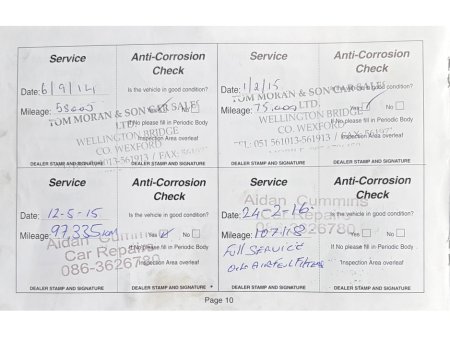 Service
Anti-Corrosion
Check
Date: 6/9/14
Is the vehicle in good condition?
Mileage:
Yes No
TOM MORAN & SON CAR SALES
LTD.
If No please fill in Periodic Body
WELLINGTON BRIDGE
Inspection Area overleaf
CO. WEXFORD
DEALER STAMP AND SIGNATURE
DEALER STAMP AND SIGNATURE
Service
Anti-Corrosion
Check
Date: 1/2/15
Is the vehicle in good condition?
Mileage: 75,000
Yes No
TOM MORAN & SON CAR SALES
LTD.
If No please fill in Periodic Body
WELLINGTON BRIDGE
Inspection Area overleaf
CO. WEXFORD
TEL: 051 561013-561913 / FAX:
DEALER STAMP AND SIGNATURE
DEALER STAMP AND SIGNATURE
Service
Anti-Corrosion
Check
Date: 12-5-15
Is the vehicle in good condition?
Mileage: 97,335km
Yes No
Aidan Cummins
If No please fill in Periodic Body
Car Repairs
Inspection Area overleaf
086-3626780
DEALER STAMP AND SIGNATURE
DEALER STAMP AND SIGNATURE
Service
Anti-Corrosion
Check
Aidan Cummins
Date: 24-2-16
Is the vehicle in good condition?
Car Repairs
Mileage:
Yes No
Full SERVICE
If No please fill in Periodic Body
Inspection Area overleaf
DEALER STAMP AND SIGNATURE
DEALER STAMP AND SIGNATURE
Page 10